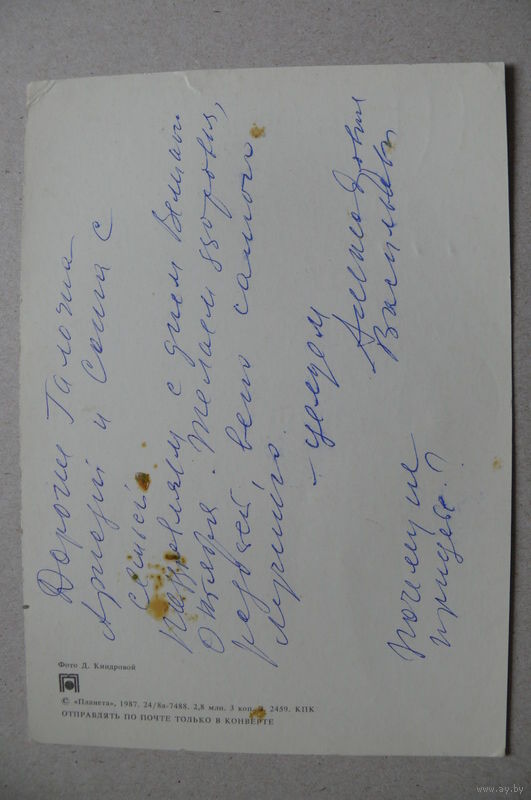 Дорогие Галочка
Аркадий и Саша с
семьей
Поздравляем с днем Велико
Октября. Желаем здоровья,
радостей всего самого
лучшего.
– целуем
Васильевы
Почему не
придете?
Фото Д. Киндровой
© «Планета», 1987. 24/8а-7488. 2,8 млн. 3 коп. 2459. КПК
ОТПРАВЛЯТЬ ПО ПОЧТЕ ТОЛЬКО В КОНВЕРТЕ
www.ay.by